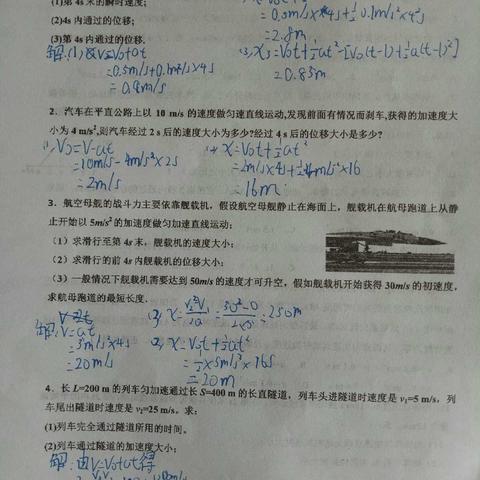 (1)第4s末的瞬时速度;
(2)4s内通过的位移;
=0.5m/s×4s+½·0.1m/s²×4²s
(3)第4s内通过的位移.
=2.8m
解:(1)V=V₀+at
(3)X₃=V₀t+½at²-[V₀(t-1)+½a(t-1)²]
=0.5m/s+0.1m/s²×4s
=0.85m
=0.9m/s
2. 汽车在平直公路上以 10 m/s 的速度做匀速直线运动,发现前面有情况而刹车,获得的加速度大
小为 4 m/s²,则汽车经过 2 s 后的速度大小为多少?经过 4 s 后的位移大小是多少?
=V-at
X=V₀t+½at²
=10m/s-4m/s²×2s
=2m/s×4s+½×16
=2m/s
=16m
3. 航空母舰的战斗力主要依靠舰载机,假设航空母舰静止在海面上,舰载机在航母跑道上从静
止开始以 5m/s² 的加速度做匀加速直线运动:
(1)求滑行至第 4s 末,舰载机的速度大小;
(2)求滑行的前 4s 内舰载机的位移大小;
(3)一般情况下舰载机需要达到 50m/s 的速度才可升空,假如舰载机开始获得 30m/s 的初速度,
求航母跑道的最短长度.
解:V=at
=250m
=5m/s²×4s
(2)X=V₀t+½at²
=20m/s
=½×5m/s²×16s
=20m
4. 长 L=200 m 的列车匀加速通过长 S=400 m 的长直隧道,列车头进隧道时速度是 v₁=5 m/s,列
车尾出隧道时速度是 v₂=25 m/s。求:
(1)列车完全通过隧道所用的时间。
(2)列车通过隧道的加速度大小;
解:由V=V₀+at得